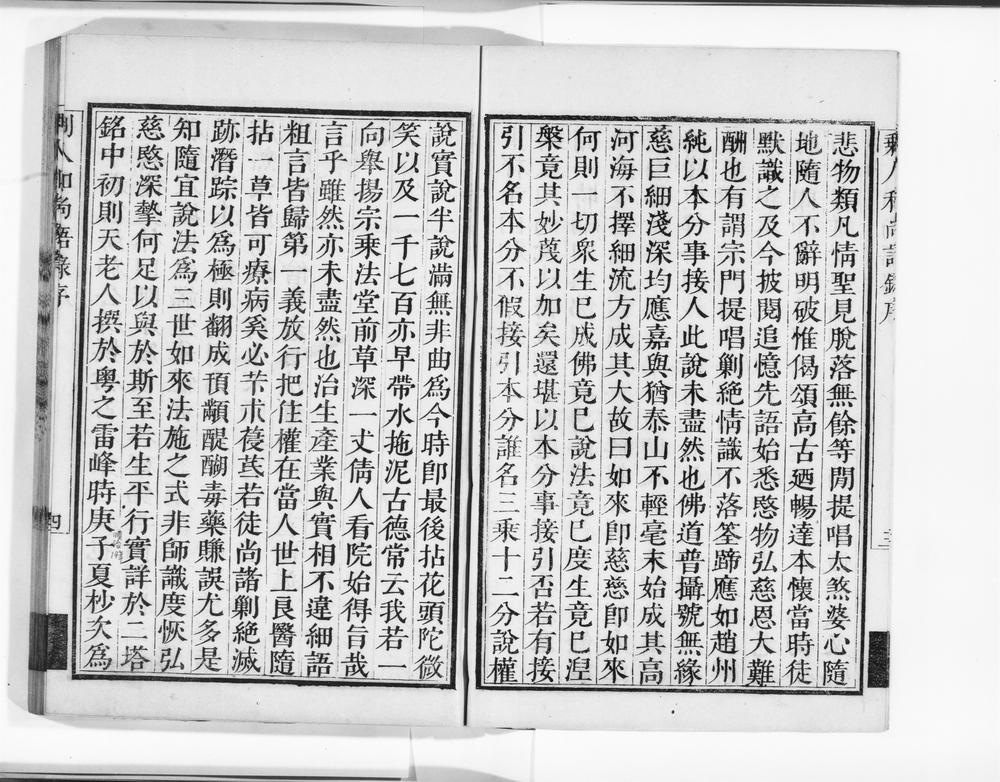 剩人和尚語錄序
三
悲物類凡情聖見脫落無餘等閒提唱太煞婆心隨
地隨人不辭明破惟偈頌高古迺暢達本懷當時徒
默識之及今披閱追憶先語始悉愍物弘慈恩大難
酬也有謂宗門提唱剿絕情識不落筌蹄應如趙州
純以本分事接人此說未盡然也佛道普攝號無緣
慈巨細淺深均應嘉與猶泰山不輕毫末始成其高
河海不擇細流方成其大故曰如來卽慈慈卽如來
何則一切衆生巳成佛竟巳說法竟巳度生竟巳湼
槃竟其妙蔑以加矣還堪以本分事接引否若有接
引不名本分不假接引本分誰名三乘十二分說權
說實說半說滿無非曲爲今時卽最後拈花頭陀微
笑以及一千七百亦早帶水拖泥古德常云我若一
向舉揚宗乘法堂前草深一丈倩人看院始得旨哉
言乎雖然亦未盡然也治生產業與實相不違細語
粗言皆歸第一義放行把住權在當人世上良醫隨
拈一草皆可療病奚必苄朮葠芪若徒尚諸剿絕滅
跡潛踪以爲極則翻成顸顢醍醐毒藥賺誤尤多是
知隨宜說法爲三世如來法施之式非師識度恢弘
慈愍深摯何足以與於斯至若生平行實詳於二塔
銘中初則天老人撰於粵之雷峰時庚子夏杪次爲
剩人和尚語錄序
四